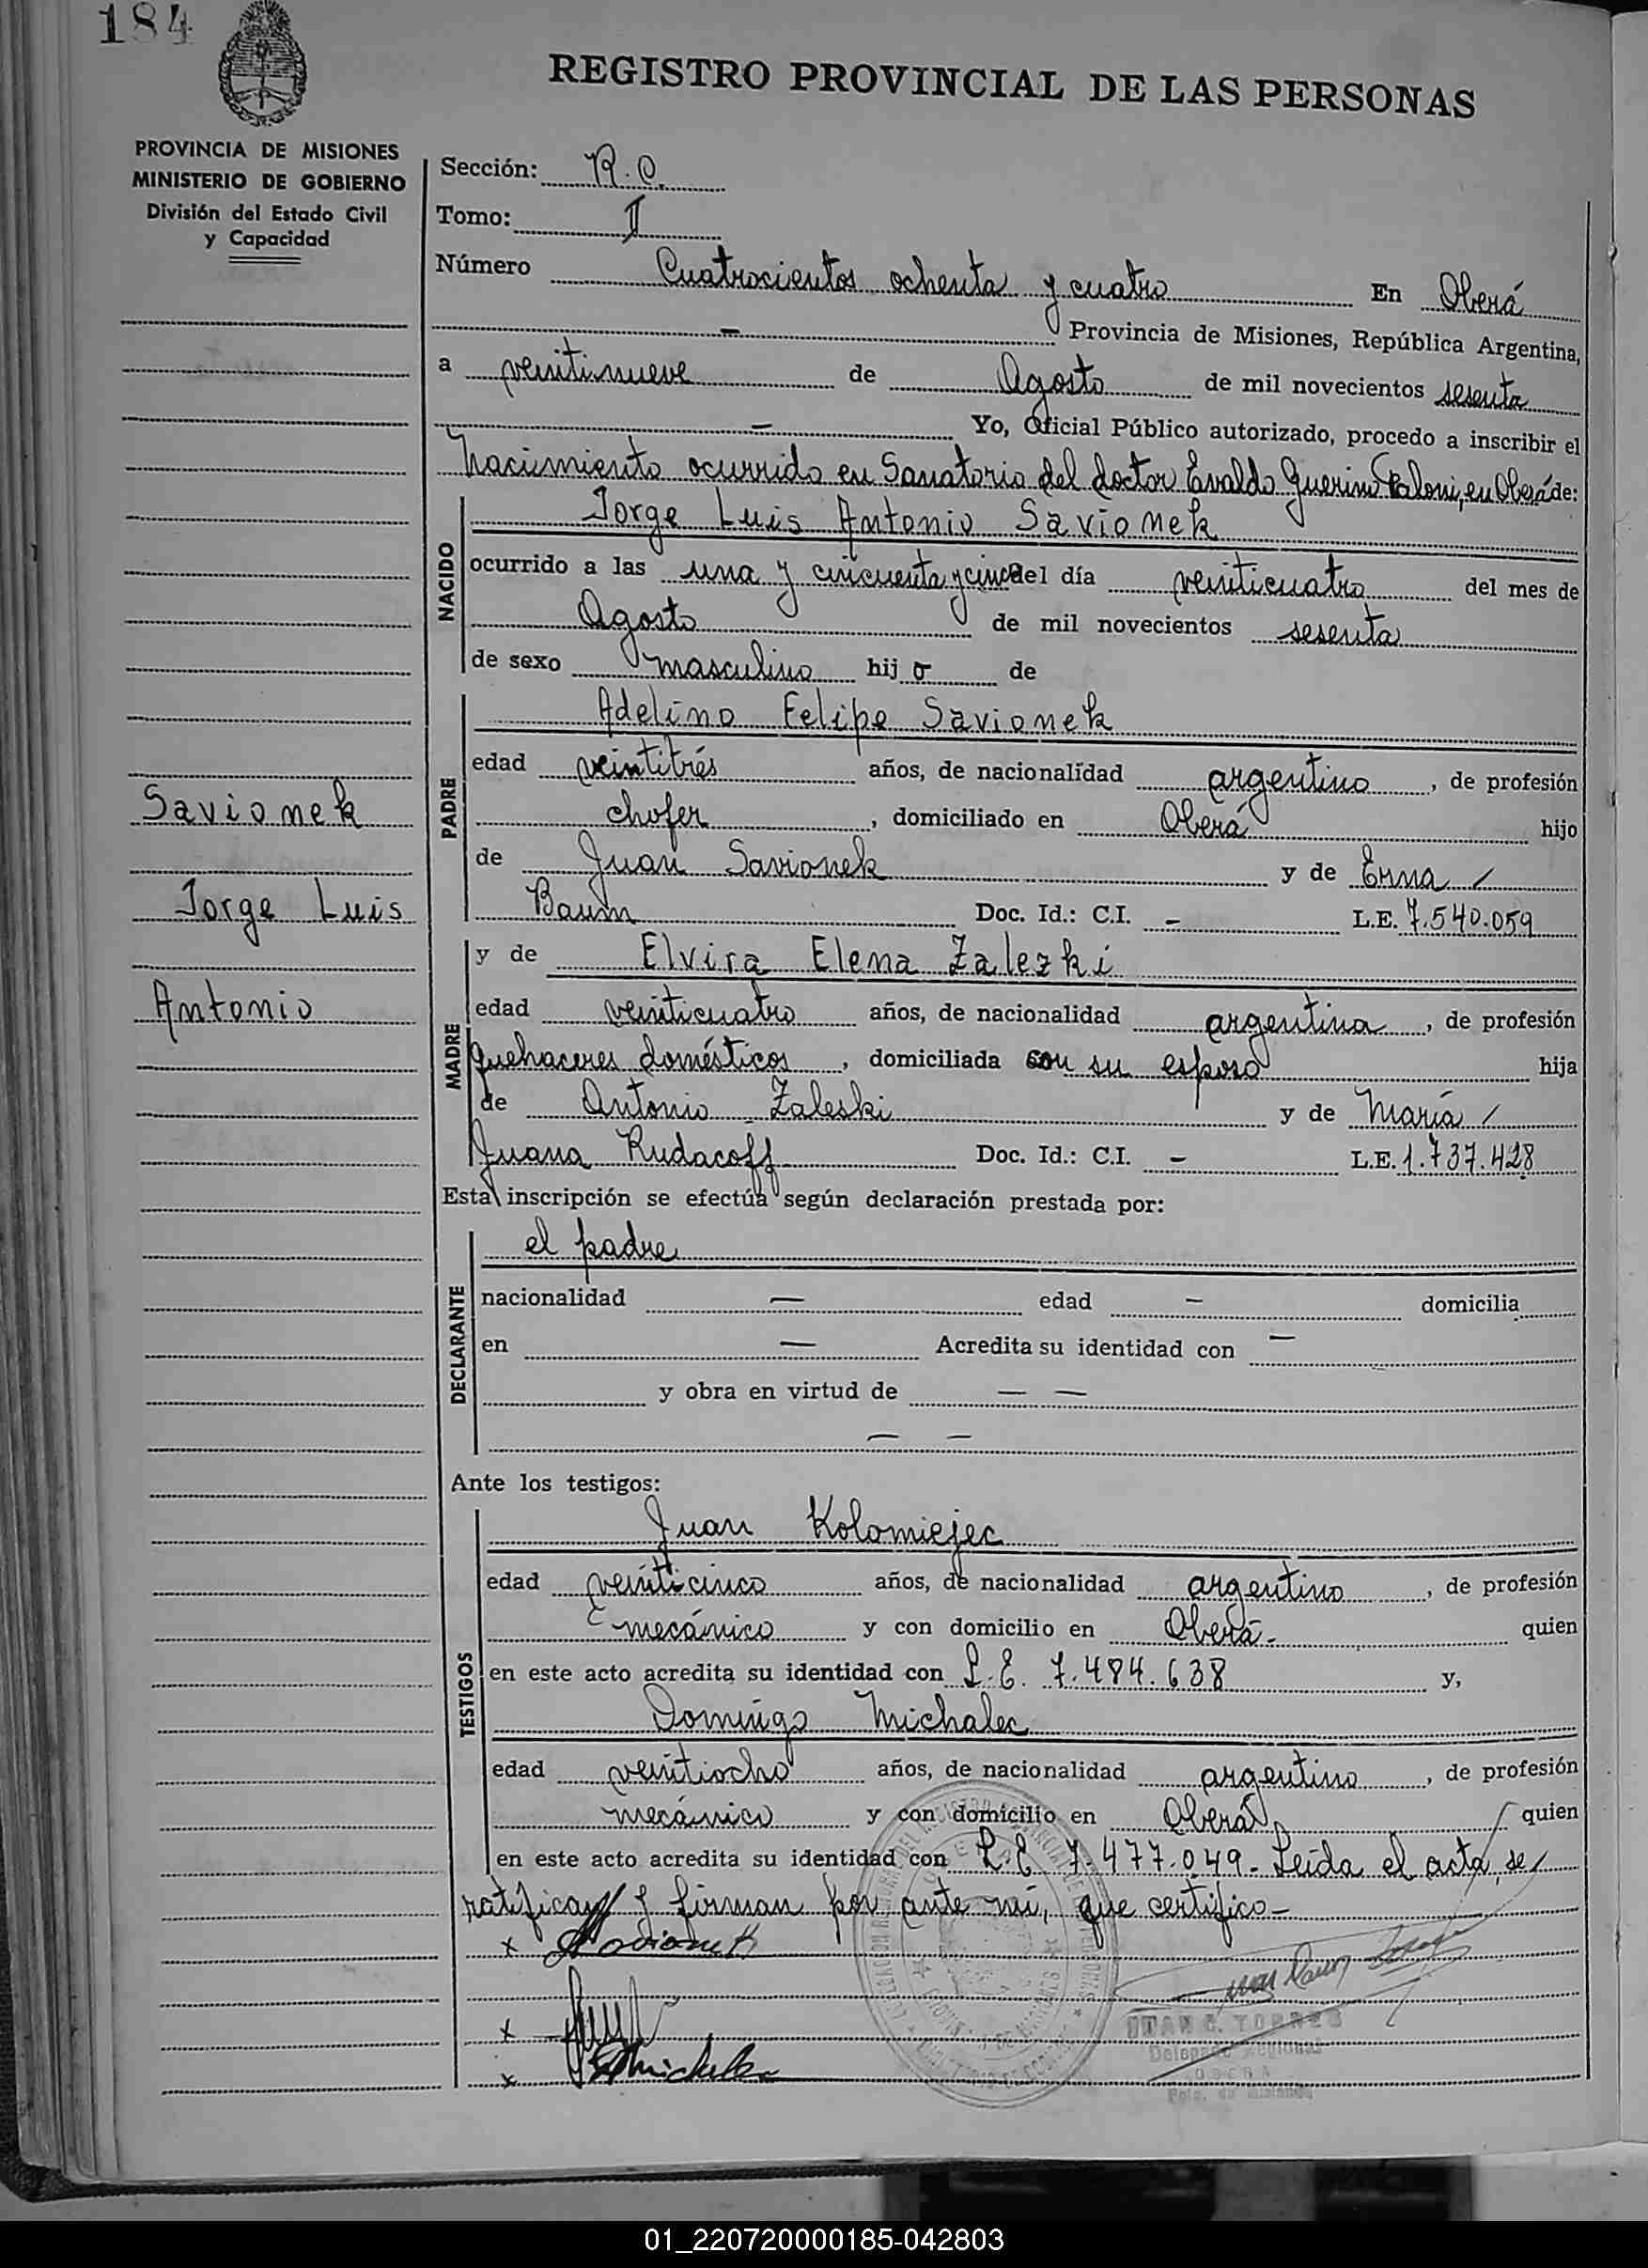 184
REGISTRO PROVINCIAL DE LAS PERSONAS
PROVINCIA DE MISIONES
MINISTERIO DE GOBIERNO
División del Estado Civil
y Capacidad
Sección: R.C.
Tomo: II
Número Cuatrocientos ochenta y cuatro En Oberá
— Provincia de Misiones, República Argentina,
a veintinueve de Agosto de mil novecientos sesenta
— Yo, Oficial Público autorizado, procedo a inscribir el
Nacimiento ocurrido en Sanatorio del doctor Evaldo Guerino en Oberá de:
NACIDO
Jorge Luis Antonio Savionek
ocurrido a las una y cincuenta y cinco del día veinticuatro del mes de
Agosto de mil novecientos sesenta
de sexo masculino hijo de
PADRE
Adelino Felipe Savionek
edad veintitrés años, de nacionalidad argentino, de profesión
chofer, domiciliado en Oberá hijo
de Juan Savionek y de Emma /
Baum Doc. Id.: C.I. - L.E. 7.540.059
Savionek
Jorge Luis
Antonio
MADRE
y de Elvira Elena Zalezki
edad veinticuatro años, de nacionalidad argentina, de profesión
quehaceres domésticos, domiciliada con su esposo hija
de Antonio Zaleski y de María /
Juana Rudacoff Doc. Id.: C.I. - L.E. 1.737.428
Esta inscripción se efectúa según declaración prestada por:
DECLARANTE
el padre
nacionalidad — edad — domicilia
en — Acredita su identidad con —
y obra en virtud de — —
— —
Ante los testigos:
TESTIGOS
Juan Kolomiejec
edad veinticinco años, de nacionalidad argentino, de profesión
mecánico y con domicilio en Oberá- quien
en este acto acredita su identidad con L.E. 7.484.638 y,
Domingo Michalec
edad veintiocho años, de nacionalidad argentino, de profesión
mecánico y con domicilio en Oberá, quien
en este acto acredita su identidad con L.E. 7.477.049- Leída el acta, se
ratifican y firman por ante mí, que certifico-
x Savionek
x
x Michalec
JUAN C. TORRES
Delegado Regional
OBERA
Pcia. de Misiones
01_220720000185-042803